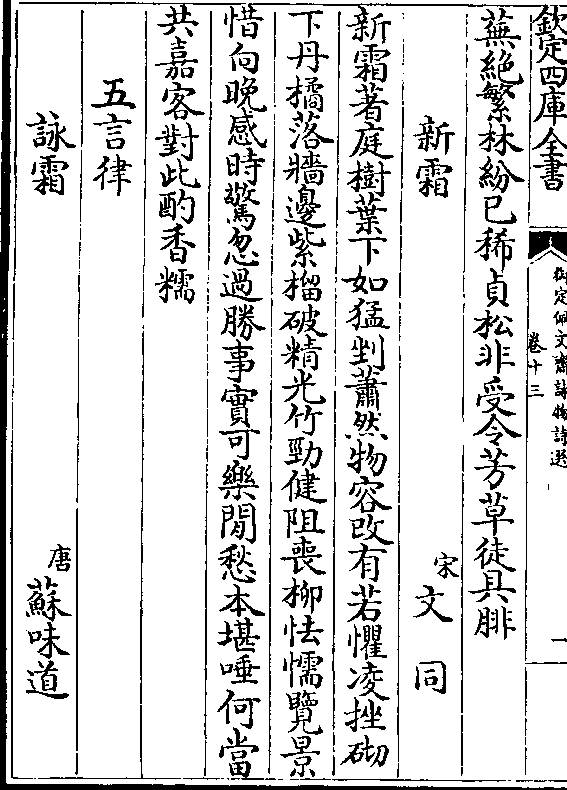 欽定四庫全書
御定佩文齋詠物詩選
卷十三
一
蕪絶繁林紛已稀貞松非受令芳草徒具腓
新霜
宋
文同
新霜著庭樹葉下如猛剉蕭然物容改有若懼凌挫砌
下丹橘落牆邊紫榴破精光竹勁健阻喪柳怯懦覽景
惜向晚感時驚忽過勝事實可樂閒愁本堪唾何當
共嘉客對此酌香糯
五言律
詠霜
唐
蘇味道